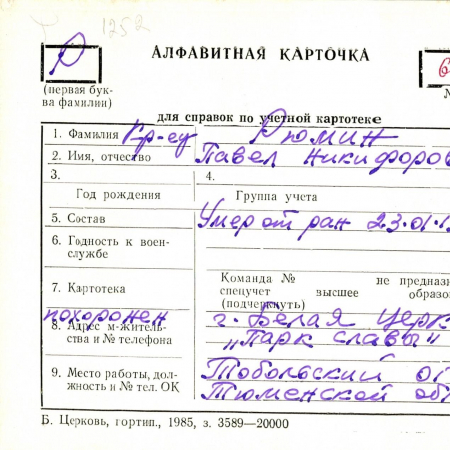 1252
Р
АЛФАВИТНАЯ КАРТОЧКА
6
(первая бук-
ва фамилии)
№
для справок по учетной картотеке
1. Фамилия Кр-ец Рюмин
2. Имя, отчество Павел Никифоров
3.
4.
Год рождения
Группа учета
5. Состав Умер от ран 23.01.1
6. Годность к воен-
службе
7. Картотека
Команда № не предназ
спецучет высшее образо
(подчеркнуть)
похоронен г. Белая Церк
8. Адрес м-житель-
ства и № телефона „Парк славы"
9. Место работы, дол-
жность и № тел. ОК
Тобольский
Тюменской об
Б. Церковь, гортип., 1985, з. 3589—20000